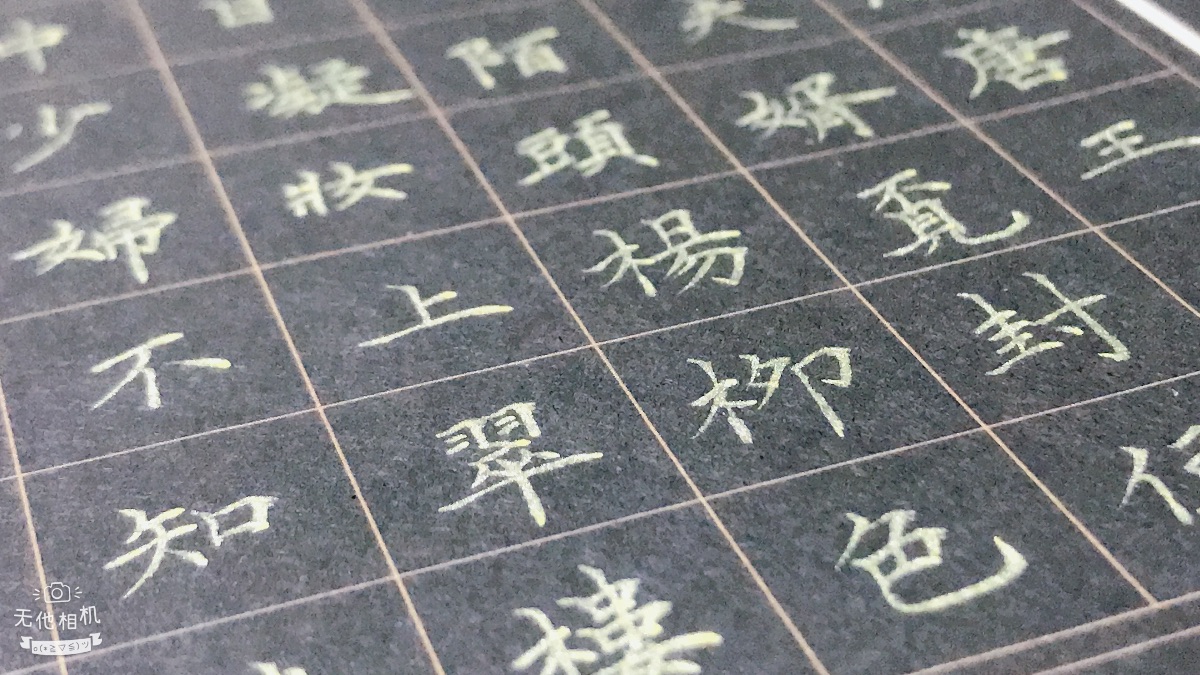 中少婦不知
日凝妝上翠樓
陌頭楊柳色
夫婿覓封
唐王
无他相机